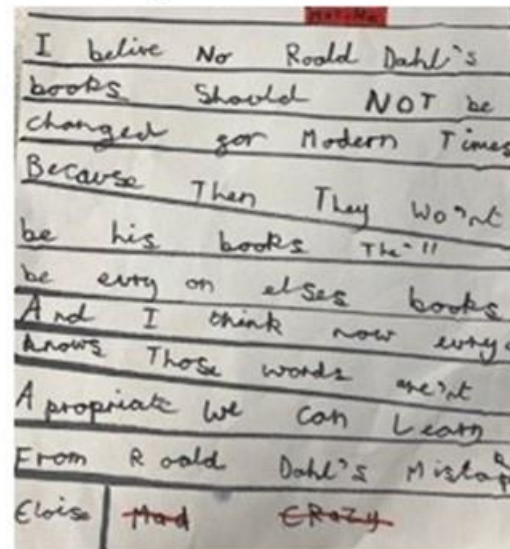 I belive No Roald Dahl's
books Should NOT be
changed gor Modern Times
Because Then They Wo'nt
be his books The'll
be evry on elses books
And I think now evry
knows Those words are'nt
Apropriate We can Learn
From Roald Dahl's
Eloise Mad CRaZy